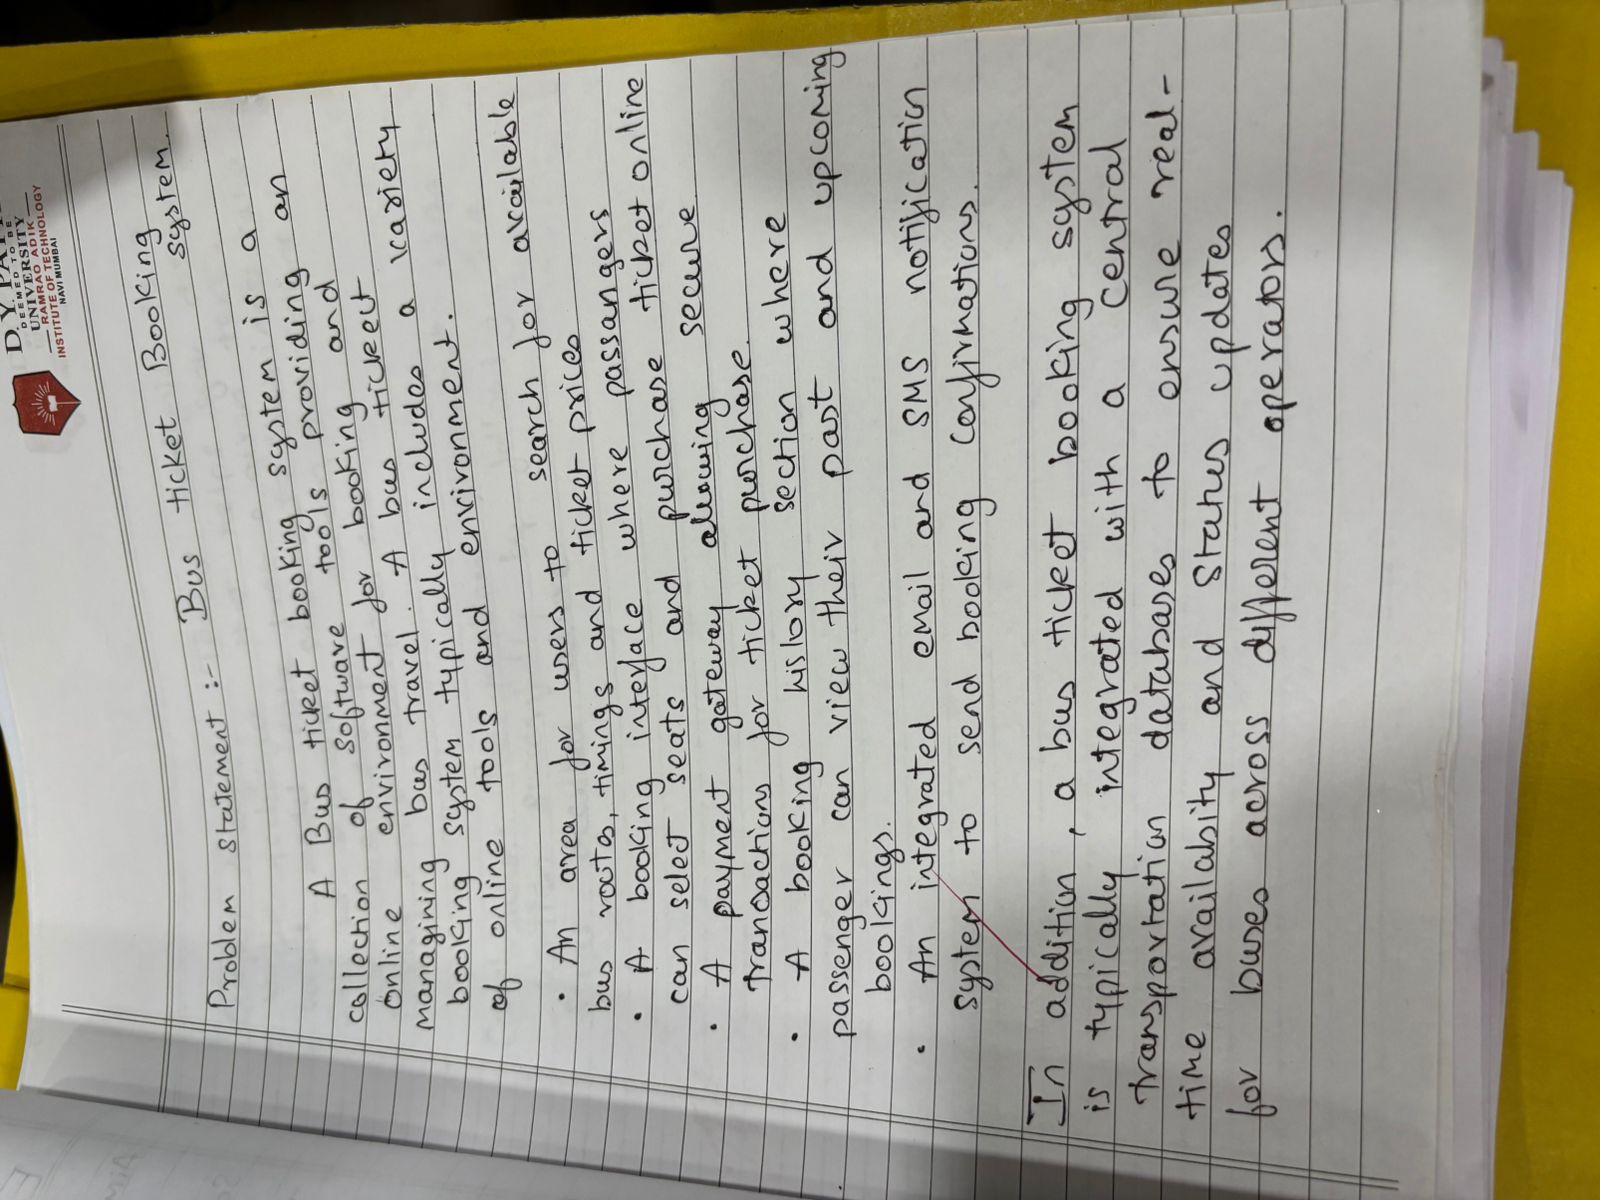 D. Y. PATI
DEEMED TO BE
UNIVERSITY
RAMRAO ADIK
INSTITUTE OF TECHNOLOGY
NAVI MUMBAI
Problem statement :- Bus ticket Booking
system.
A Bus ticket booking system is a
collection of software tools providing an
online environment for booking and
managining bus travel. A bus tickect
booking system typically includes a variety
of online tools and environment.
• An area for users to search for available
bus routs, timings and ticket prices
• A booking interface where passangers
can select seats and purchase ticket online
• A payment gateway allowing secure
transactions for ticket purchase.
• A booking history section where
passenger can view their past and upcoming
bookings.
• An integrated email and SMS notification
system to send booking confirmations.
In addition, a bus ticket booking system
is typically integrated with a central
transportation databases to ensure real-
time availabity and status updates
for buses across different operators.